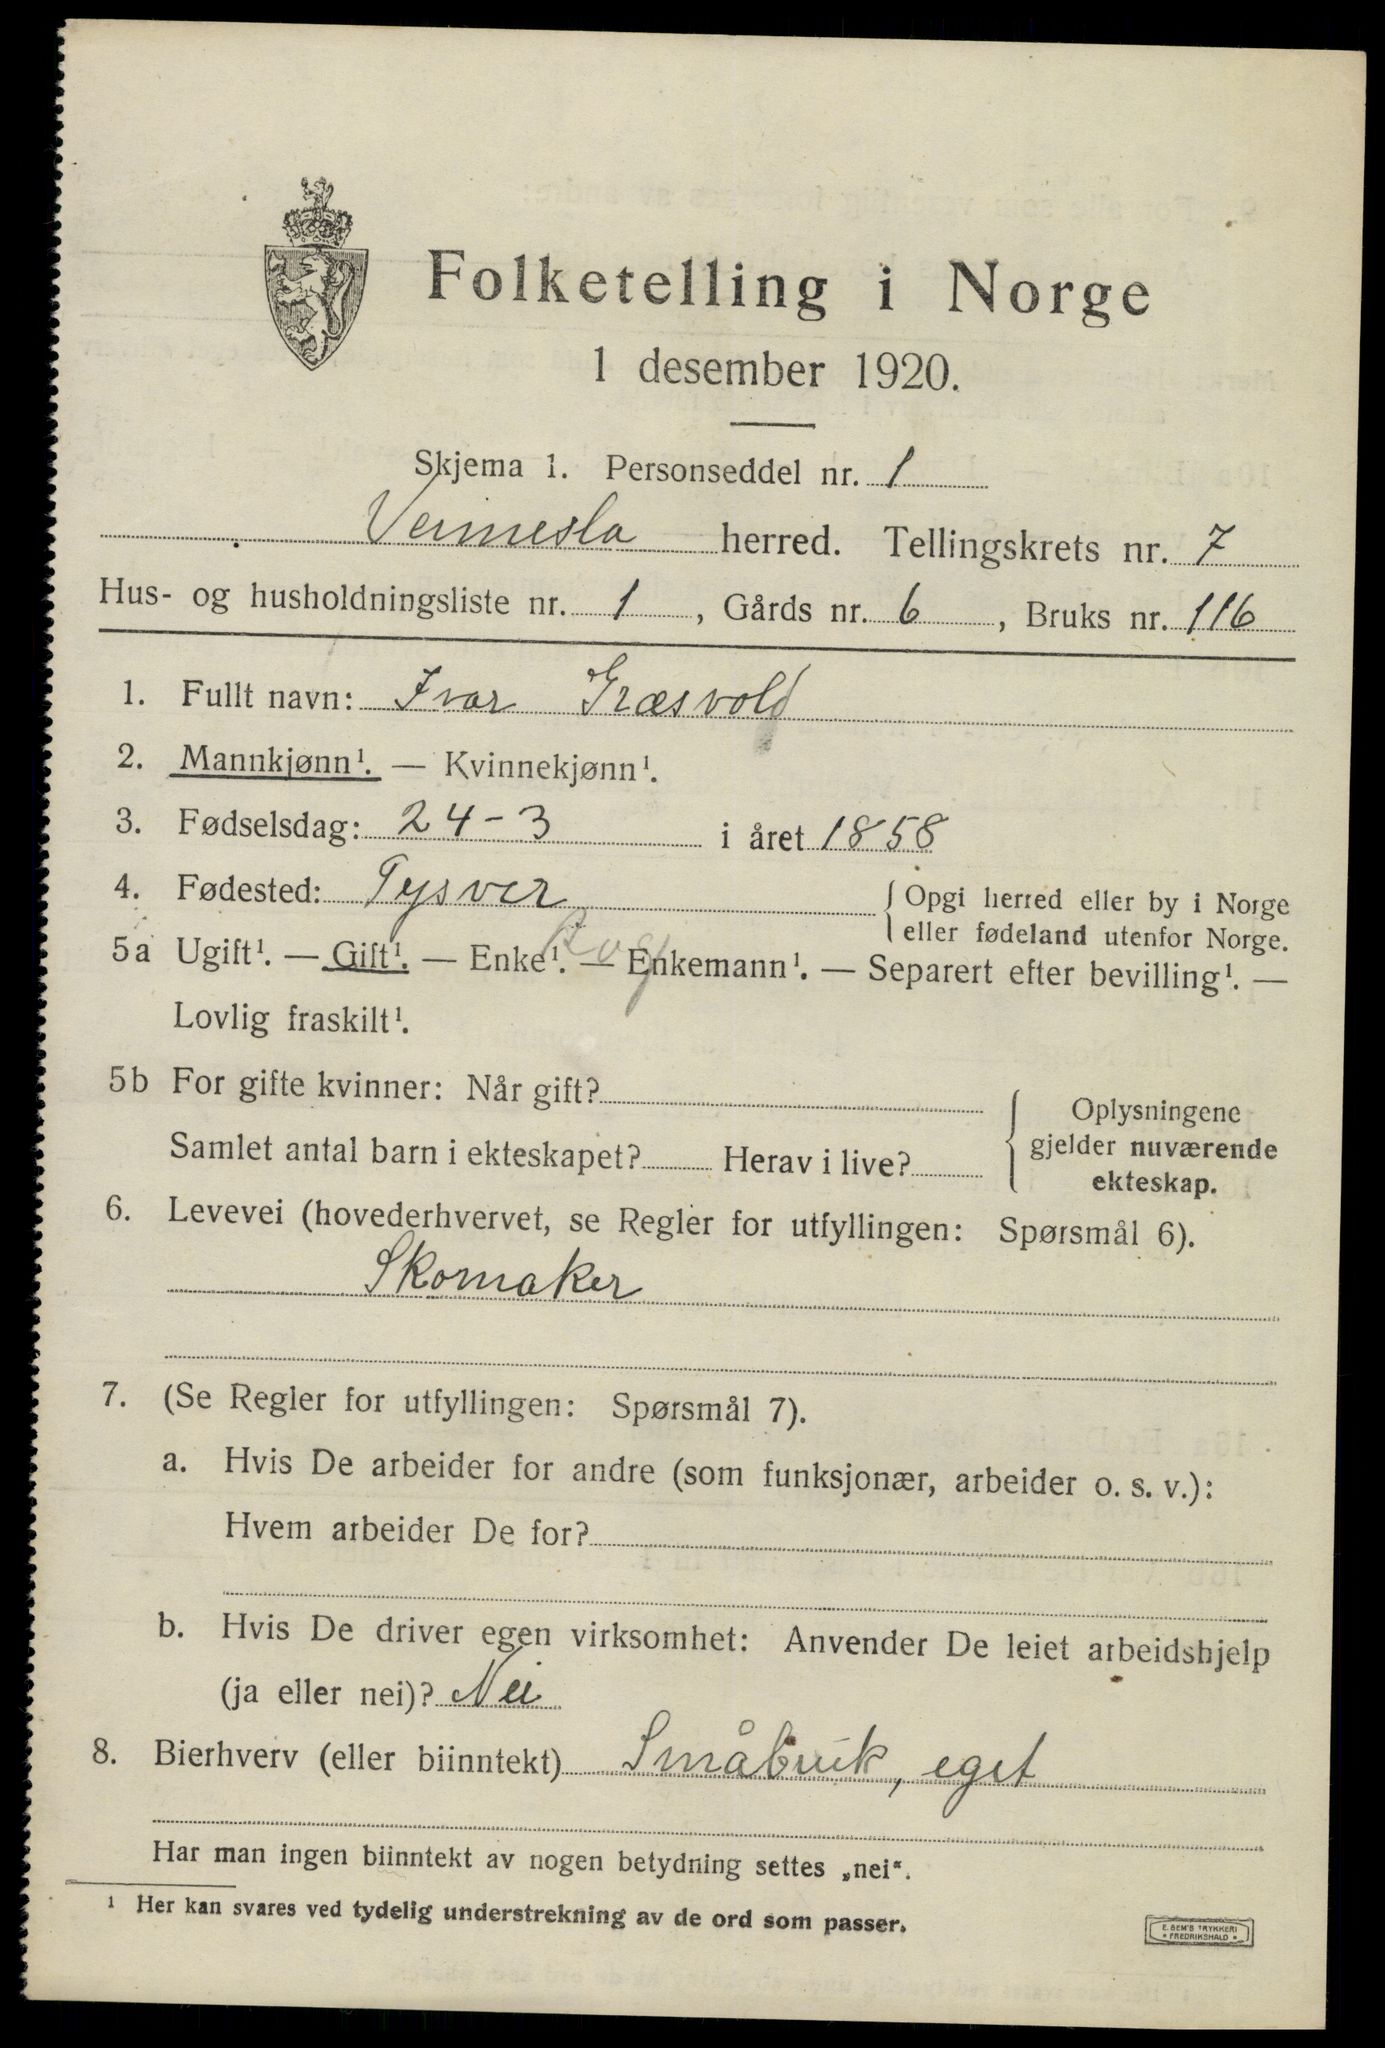 Folketelling i Norge
1 desember 1920.
Skjema 1. Personseddel nr. 1
Vennesla herred. Tellingskrets nr. 7
Hus- og husholdningsliste nr. 1, Gårds nr. 6, Bruks nr. 116
1. Fullt navn: Ivar Græsvold
2. Mannkjønn¹. — Kvinnekjønn¹.
3. Fødselsdag: 24-3 i året 1858
4. Fødested: Tysver { Opgi herred eller by i Norge
eller fødeland utenfor Norge.
Rog
5a Ugift¹. — Gift¹. — Enke¹. — Enkemann¹. — Separert efter bevilling¹. —
Lovlig fraskilt¹.
5b For gifte kvinner: Når gift?
Samlet antal barn i ekteskapet? Herav i live?
Oplysningene
gjelder nuværende
ekteskap.
6. Levevei (hovederhvervet, se Regler for utfyllingen: Spørsmål 6).
Skomaker
7. (Se Regler for utfyllingen: Spørsmål 7).
a. Hvis De arbeider for andre (som funksjonær, arbeider o. s. v.):
Hvem arbeider De for?
b. Hvis De driver egen virksomhet: Anvender De leiet arbeidshjelp
(ja eller nei)? Nei
8. Bierhverv (eller biinntekt) Småbruk, eget
Har man ingen biinntekt av nogen betydning settes „nei“.
¹ Her kan svares ved tydelig understrekning av de ord som passer.
E. SEM'S TRYKKERI
* FREDRIKSHALD *